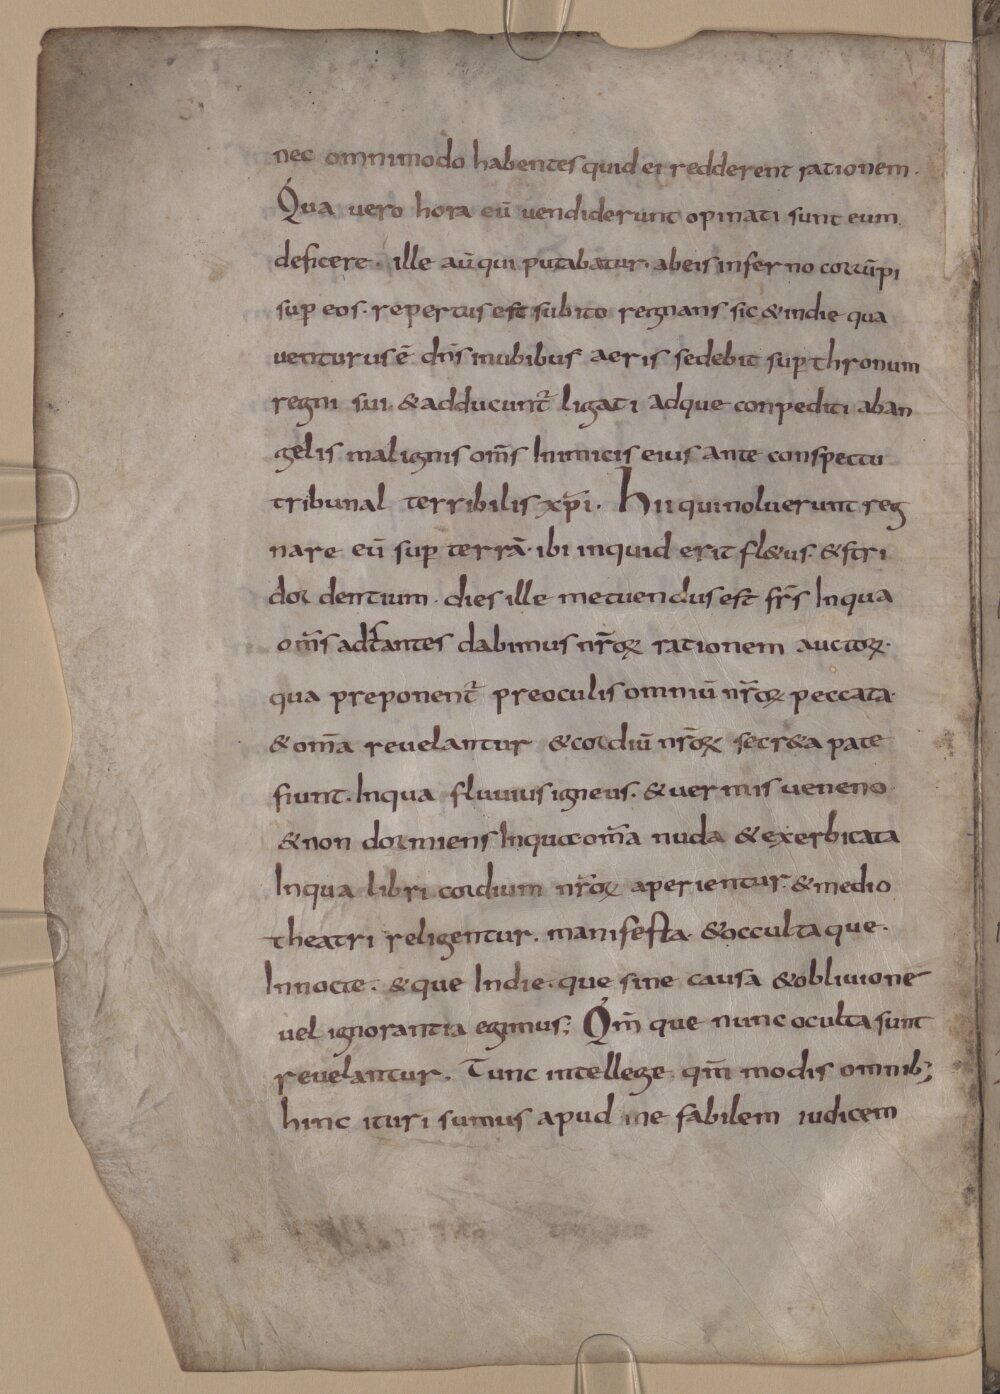 nec omnimodo habentes quid ei redderent rationem.
Qua vero hora eū vendiderunt opinati sunt eum
deficere. ille aū qui putabatur. abeis inferno corrūpi
sup eos. repertus est subito regnans sic & indie qua
venturus ē dn̄s innubibus aeris sedebit sup thronum
regni sui & adducunt̄ ligati adque conpediti aban
gelis malignis om̄s Inimicis eius ante conspectu
tribunal terribilis xp̄i. hii qui noluerunt reg
nare eū sup terrā. ibi inquid erit fl&us. & stri
dor dentium. dies ille metuendus est fr̄s Inqua
om̄s adstantes dabimus nr̄oꝝ rationem auctoꝝ.
qua preponent̄ preoculis omniū nr̄oꝝ peccata.
& om̄a revelantur & cordiū nr̄oꝝ secr&a pate
fiunt. Inqua fluvius igneus. & vermis veneno
& non dormiens Inqua om̄a nuda & exerbitata
Inqua libri cordium nr̄oꝝ aperientur. & medio
theatri religentur. manifesta & occulta que.
Innocte. & que Indie. que sine causa & oblivionē
vel ignorantia egimus; Qm̄ que nunc oculta sunt
revelantur. Tunc intellege qm̄ modis omnib;
hinc ituri sumus apud ine fabilem iudicem